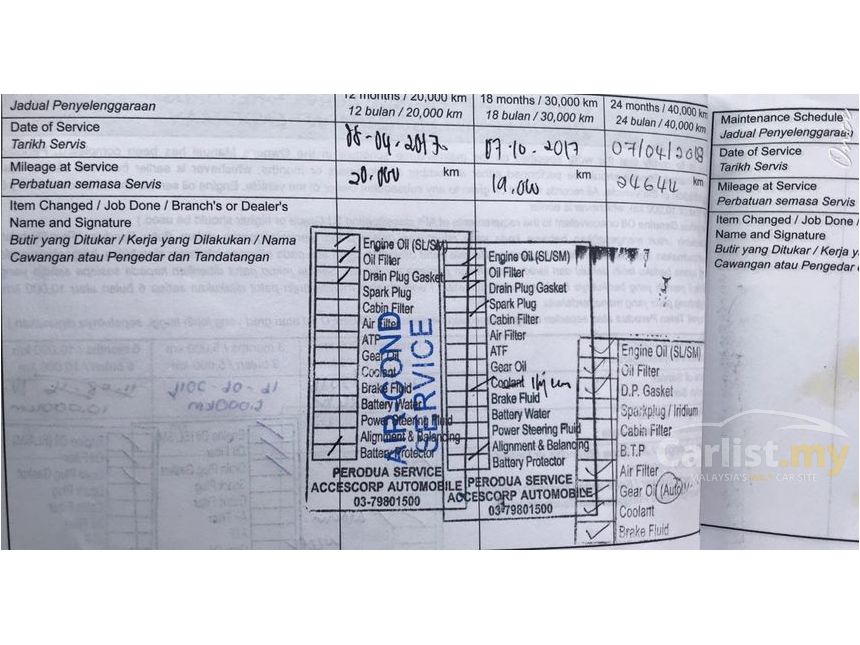 12 months / 20,000 km
18 months / 30,000 km
24 months / 40,000 km
Jadual Penyelenggaraan
12 bulan / 20,000 km
18 bulan / 30,000 km
24 bulan / 40,000 km
Maintenance Schedule
Jadual Penyelenggaraan
Date of Service
Tarikh Servis
08-04-2017
07.10.2017
07/04/2018
Date of Service
Tarikh Servis
Mileage at Service
Perbatuan semasa Servis
20.000 km
19,000 km
24644 km
Mileage at Service
Perbatuan semasa Servis
Item Changed / Job Done / Branch's or Dealer's
Name and Signature
Butir yang Ditukar / Kerja yang Dilakukan / Nama
Cawangan atau Pengedar dan Tandatangan
Item Changed / Job Done /
Name and Signature
Butir yang Ditukar / Kerja
Cawangan atau Pengedar
Engine Oil (SL/SM)
Oil Filter
Drain Plug Gasket
Spark Plug
Cabin Filter
Air Filter
ATF
Gear Oil
Coolant
Brake Fluid
Battery Water
Power Steering Fluid
Alignment & Balancing
Battery Protector
PERODUA SERVICE
ACCESCORP AUTOMOBILE
03-79801500
AIRCOND
SERVICE
Engine Oil (SL/SM)
Oil Filter
Drain Plug Gasket
Spark Plug
Cabin Filter
Air Filter
ATF
Gear Oil
Coolant
Brake Fluid
Battery Water
Power Steering Fluid
Alignment & Balancing
Battery Protector
PERODUA SERVICE
ACCESCORP AUTOMOBILE
03-79801500
Engine Oil (SL/SM)
Oil Filter
D.P. Gasket
Sparkplug / Iridium
Cabin Filter
B.T.P
Air Filter
Gear Oil (Auto)
Coolant
Brake Fluid
Carlist.my
MALAYSIA'S NO.1 CAR SITE